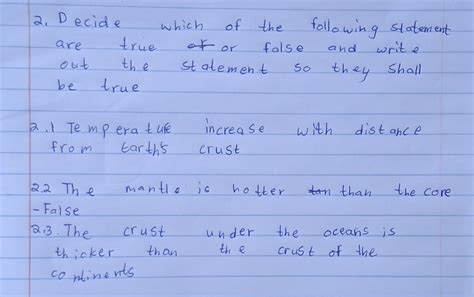 2. Decide which of the following statement
are true or or false and write
out the statement so they shall
be true
2.1 Temperature increase with distance
from Earth's crust
2.2 The mantle is hotter tan than the core
-False
2.3. The crust under the oceans is
thicker than the crust of the
continents